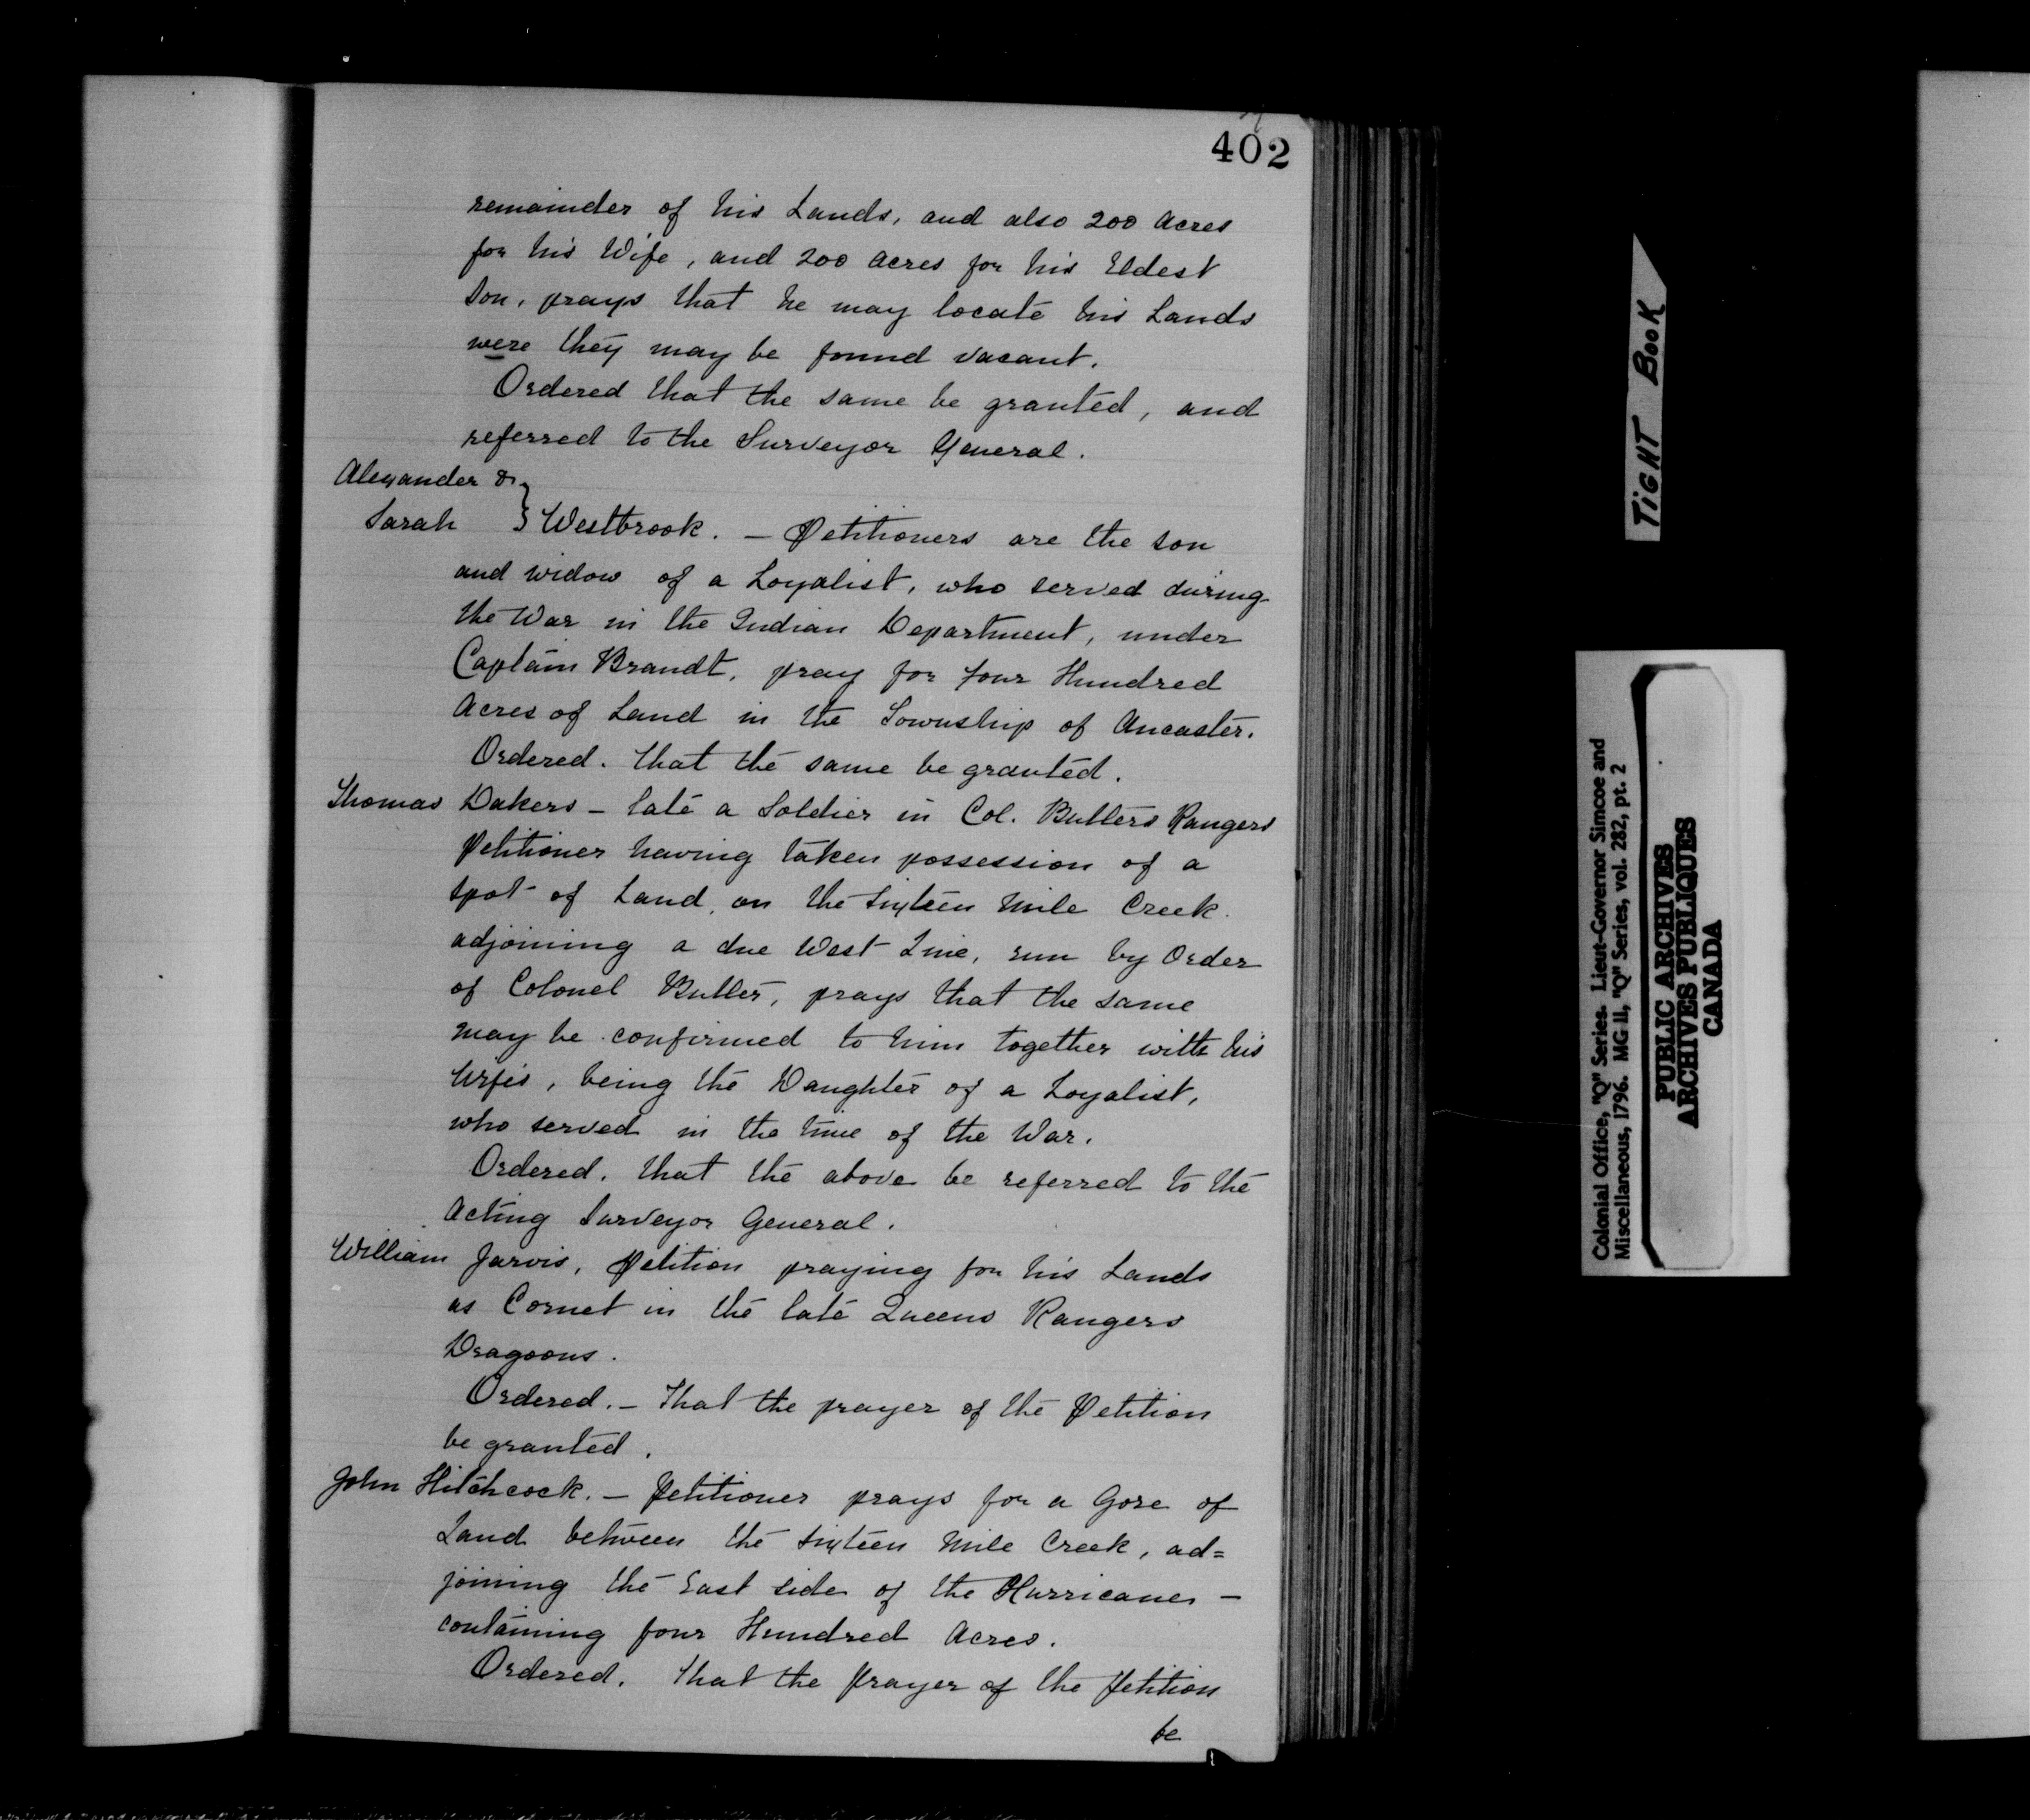 402
remainder of his Lands, and also 200 Acres
for his Wife, and 200 Acres for his Eldest
Son, prays that he may locate his Lands
were they may be found vacant.
Ordered that the same be granted, and
referred to the Surveyor General.
Alexander &
Sarah } Westbrook. — Petitioners are the son
and widow of a Loyalist, who served during
the War in the Indian Department, under
Captain Brandt, pray for four Hundred
Acres of Land in the Township of Ancaster.
Ordered. that the same be granted.
Thomas Dakers — late a Soldier in Col. Butlers Rangers
Petitioner having taken possession of a
spot of Land, on the Sixteen Mile Creek.
adjoining a due West Line, run by Order
of Colonel Butler, prays that the same
may be confirmed to him together with his
Wifes, being the Daughter of a Loyalist,
who served in the time of the War.
Ordered. that the above be referred to the
Acting Surveyor General.
William Jarvis, Petition praying for his Lands
as Cornet in the late Queens Rangers
Dragoons.
Ordered. — That the prayer of the Petition
be granted.
John Hitchcock. — Petitioner prays for a Gore of
Land between the Sixteen Mile Creek, ad=
joining the East side of the Hurricane —
containing four Hundred Acres.
Ordered. that the Prayer of the Petition
be
TIGHT BOOK
Colonial Office, "Q" Series. Lieut-Governor Simcoe and
Miscellaneous, 1796. MG 11, "Q" Series, vol. 282, pt. 2
PUBLIC ARCHIVES
ARCHIVES PUBLIQUES
CANADA